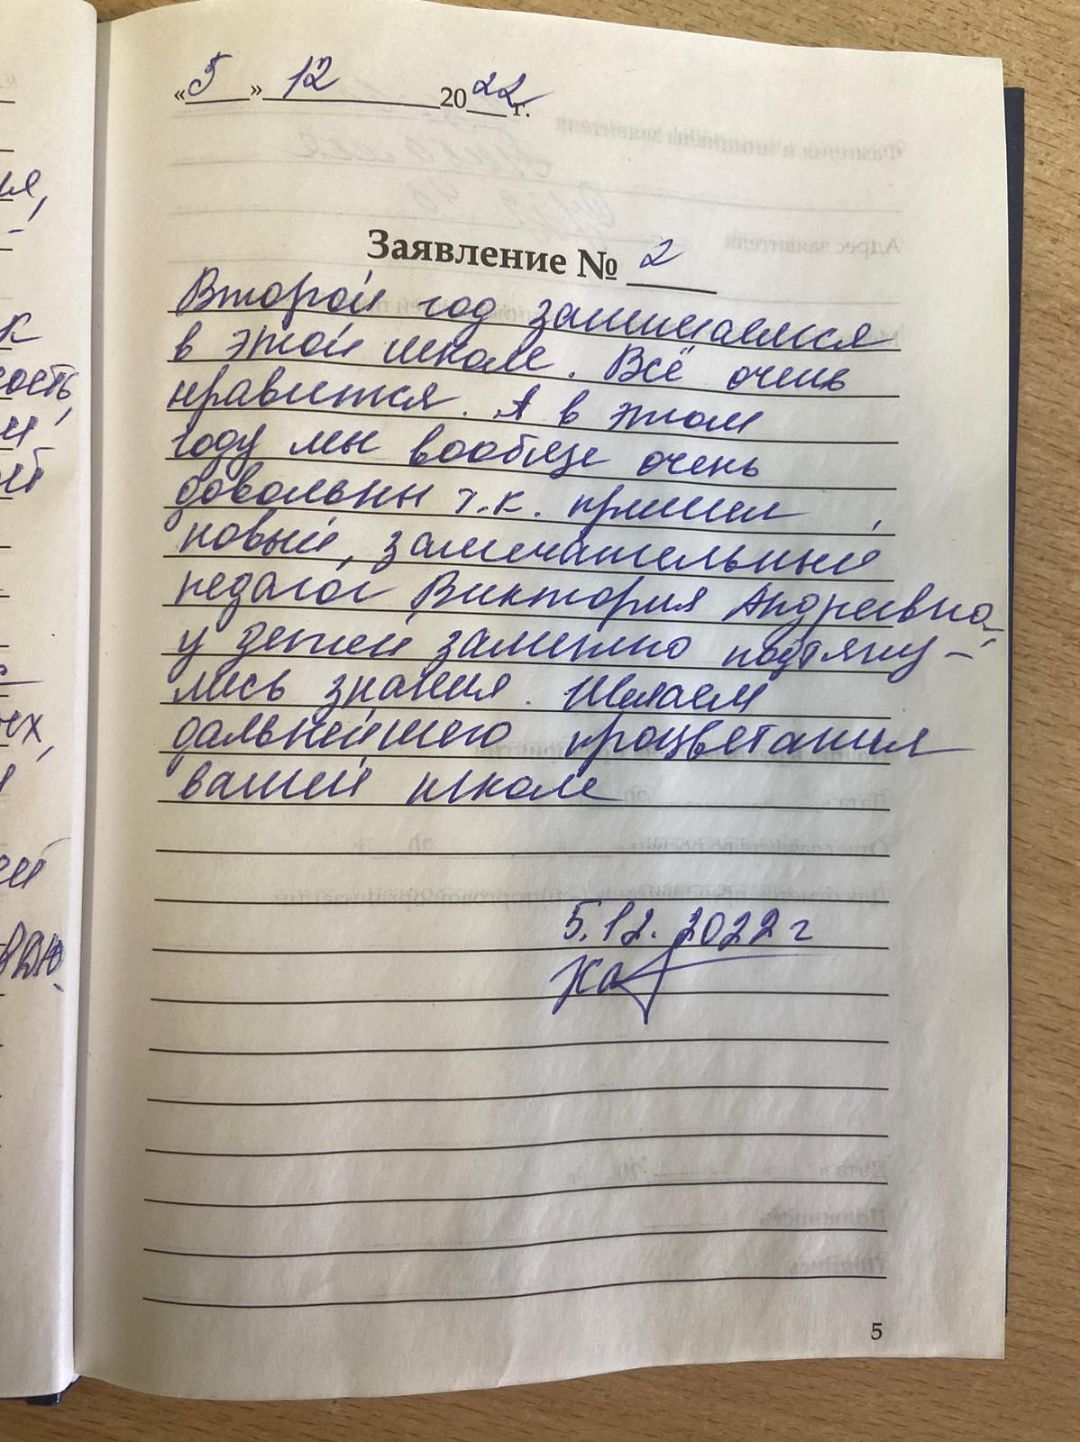 «5» 12 2022 г.
Заявление № 2
Второй год занимаемся
в этой школе. Всё очень
нравится. А в этом
году мы вообще очень
довольны т.к. пришел
новый, замечательный
педагог Виктория Андреевна
у детей заметно подтяну-
лись знания. Желаем
дальнейшего процветания
вашей школе
5.12.2022 г
5